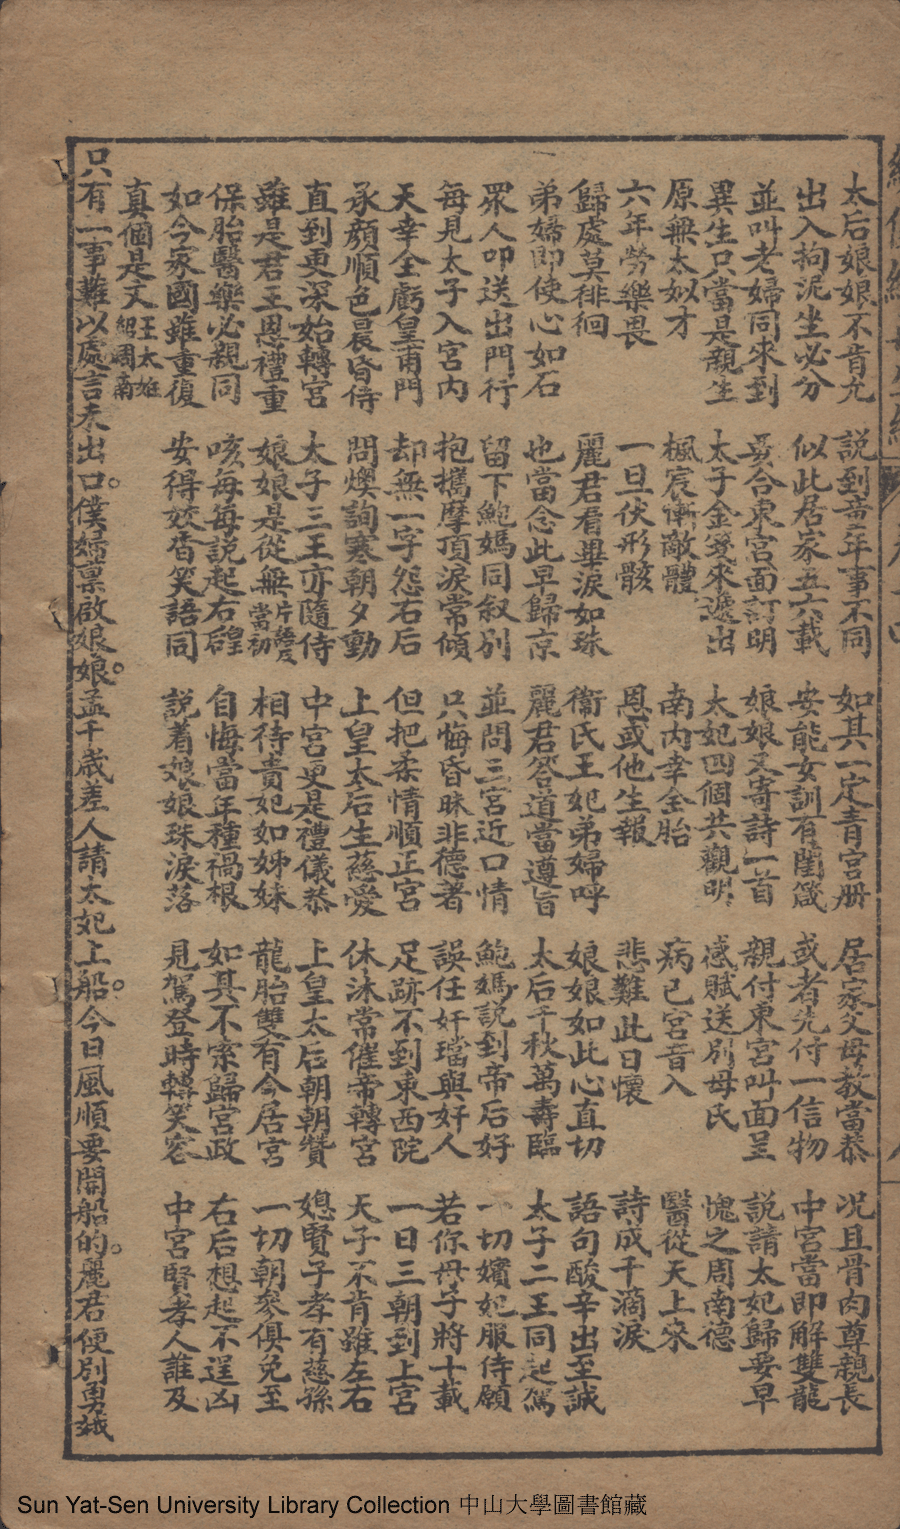 太后娘娘不肯允 説到年事不同 如其一定青宫册 居家父母教當恭 况且骨肉尊親長
出入拘泥坐必分 似此居家五六載 安能女訓有閨箴 或者先付一信物 中宫當即解雙龍
並叫老婦同來到 要合東宫面訂明 娘娘又寄詩一首 親付東宫叫面呈 説請太妃歸要早
異生只當是親生 太子金箋來遞出 太妃四個共觀明 感賦送別母氏 愧之周南德
原無太姒才 楓宸慚敵體 南内幸全胎 病已宫音入 醫從天上來
六年勞樂畏 一旦伏形骸 恩或他生報 悲難此日懷 詩成千滴淚
歸處莫徘徊 麗君看畢淚如珠 衛氏王妃弟婦呼 娘娘如此心直切 語句酸辛出至誠
弟婦即使心如石 也當念此早歸京 麗君答道當遵旨 太后千秋萬壽臨 太子二王同起駕
眾人叩送出門行 留下鮑媽同叙別 並問三宫近口情 鮑媽説到帝后好 一切嬪妃服侍願
每見太子入宫内 抱攜摩頂淚常傾 只悔昏昧非德著 誤任奸璫與奸人 若你母子將十載
天幸全虧皇甫門 却無一字怨右后 但把柔情順正宫 足跡不到東西院 一日三朝到上宫
承顔順色晨昏侍 問燠詢寒朝夕勤 上皇太后生慈愛 休沐常催帝轉宫 天子不肯離左右
直到更深始轉宫 太子三王亦隨侍 中宫更是禮儀恭 上皇太后朝朝贊 媳賢子孝有慈孫
雖是君王恩禮重 娘娘是從無片語及當初 相待貴妃如姊妹 龍胎雙有今居宫 一切朝参俱免至
保胎醫藥必親同 咳每每説起右后 自悔當年種禍根 如其不索歸宫政 右后想起不逞凶
如今家國雖重復 安得姣杳笑語同 説着娘娘珠淚落 見駕登時轉笑容 中宫賢孝人誰及
真個是文王太姒紹周南
只有一事難以處言未出口。僕婦禀啟娘娘。孟千歲差人請太妃上船。今日風順要開船的。麗君便别勇娥
Sun Yat-Sen University Library Collection 中山大學圖書館藏